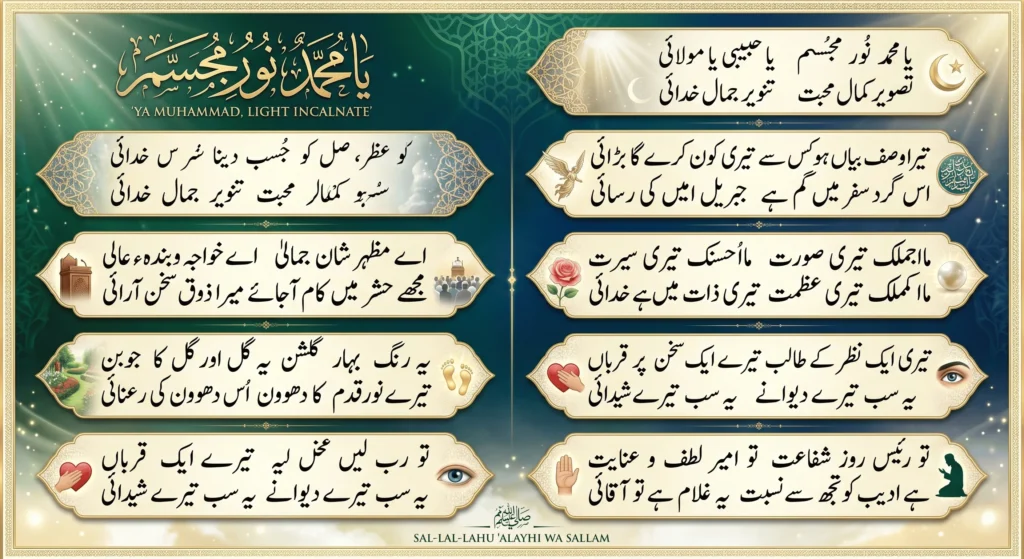 یا محمدؐ نُور مُجسَّم
'YA MUHAMMAD, LIGHT INCALNATE'
یا محمد نُور مجسُم یا حبیبی یا مولائی
تصویر کمال محبت تنویر جمال خدائی
تیرا وصف بیاں ہو کس سے تیری کون کرے گا بڑائی
اس گرد سفر میں گم ہے جبریل امیں کی رسائی
مااجملک تیری صورت مااُحسنک تیری سیرت
مااکملک تیری عظمت تیری ذات میں ہے خدائی
تیری ایک نظر کے طالب تیرے ایک سخن پر قرباں
یہ سب تیرے دیوانے یہ سب تیرے شیدائی
تو رئیس روز شفاعت تو امیر لطف و عنایت
ہے ادیب کو تجھ سے نسبت یہ غلام ہے تو آقائی
کو عظر، صل کو جُسب دینا سُر س خدائی
محبت تنویر جمال خدائی
اے مظہر شان جمالیٰ اے خواجہ و بندہء عالی
مجھے حشر میں کام آجائے میرا ذوق سخن آرائی
یہ رنگ بہار گلشن یہ گل اور گل کا جوبن
تیرے نور قدم کا دھوون اُس دھوون کی رعنائی
تو رب لیں عخل لیہ تیرے ایک قرباں
یہ سب تیرے دیوانے یہ سب تیرے شیدائی
ﷺ
SAL-LAL-LAHU 'ALAYHI WA SALLAM